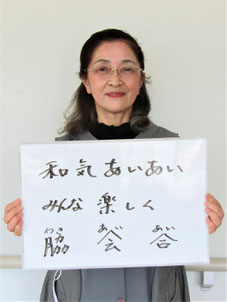 和気あいあい
みんな楽しく
わき あい あい
脇 会 合